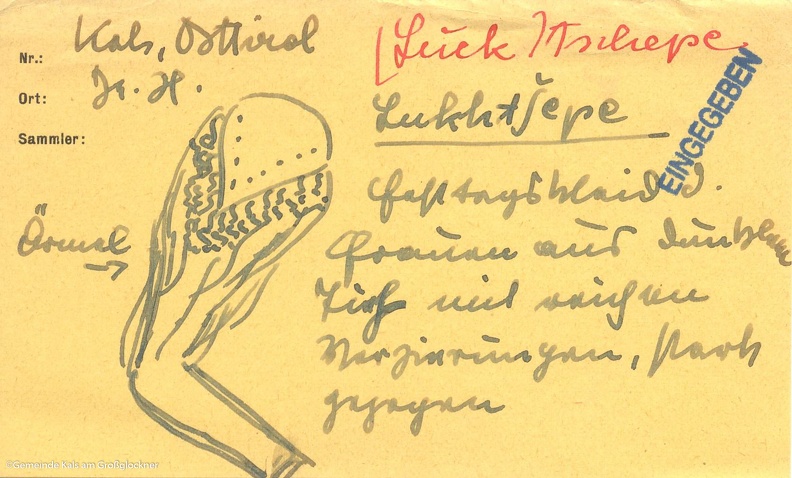 Nr.: Kals, Osttirol
Ort: Ir. H.
Sammler:
(Luck)tschepe
Lukhtšepe
EINGEGEBEN
Festtagskleid d.
Frauen aus dunklem
Tuch mit reichen
Verzierungen, stark
gezogen
Ärmel
©Gemeinde Kals am Großglockner